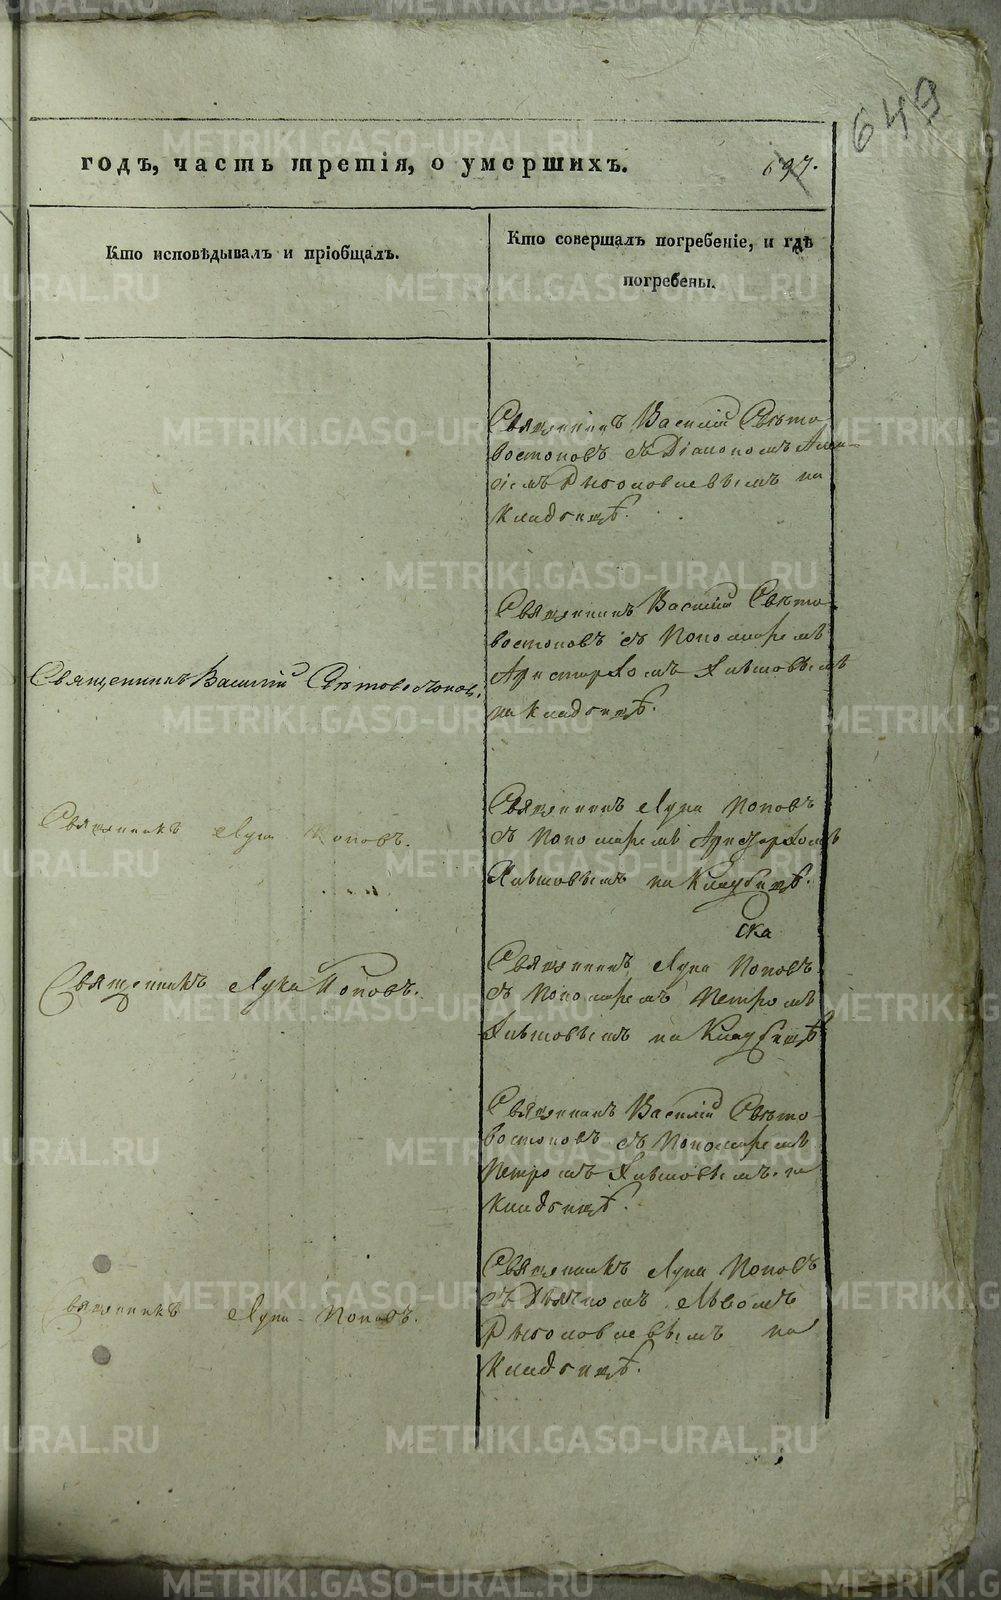 649
годъ, часть третія, о умершихъ.
697.
Кто исповѣдывалъ и пріобщалъ.
Кто совершалъ погребеніе, и гдѣ
погребены.
Священникъ Василій Свѣто
востоковъ съ Діакономъ Алек
на
Кладбищѣ.
Священникъ Василій Свѣто
востоковъ съ Пономаремъ
Аристархомъ
на Кладбищѣ.
Священникъ Василій Свѣтовостоковъ.
Священникъ Лука Поповъ
съ Пономаремъ Аристархомъ
на Кладбищѣ.
Священникъ Лука Поповъ.
ска
Священникъ Лука Поповъ
съ Пономаремъ Петромъ
на Кладбищѣ
Священникъ Лука Поповъ.
Священникъ Василій Свѣто
востоковъ съ Пономаремъ
Петромъ на
Кладбищѣ.
Священникъ Лука Поповъ
съ Дьячкомъ Львомъ
на
Кладбищѣ.
Священникъ Лука Поповъ.
METRIKI.GASO-URAL.RU